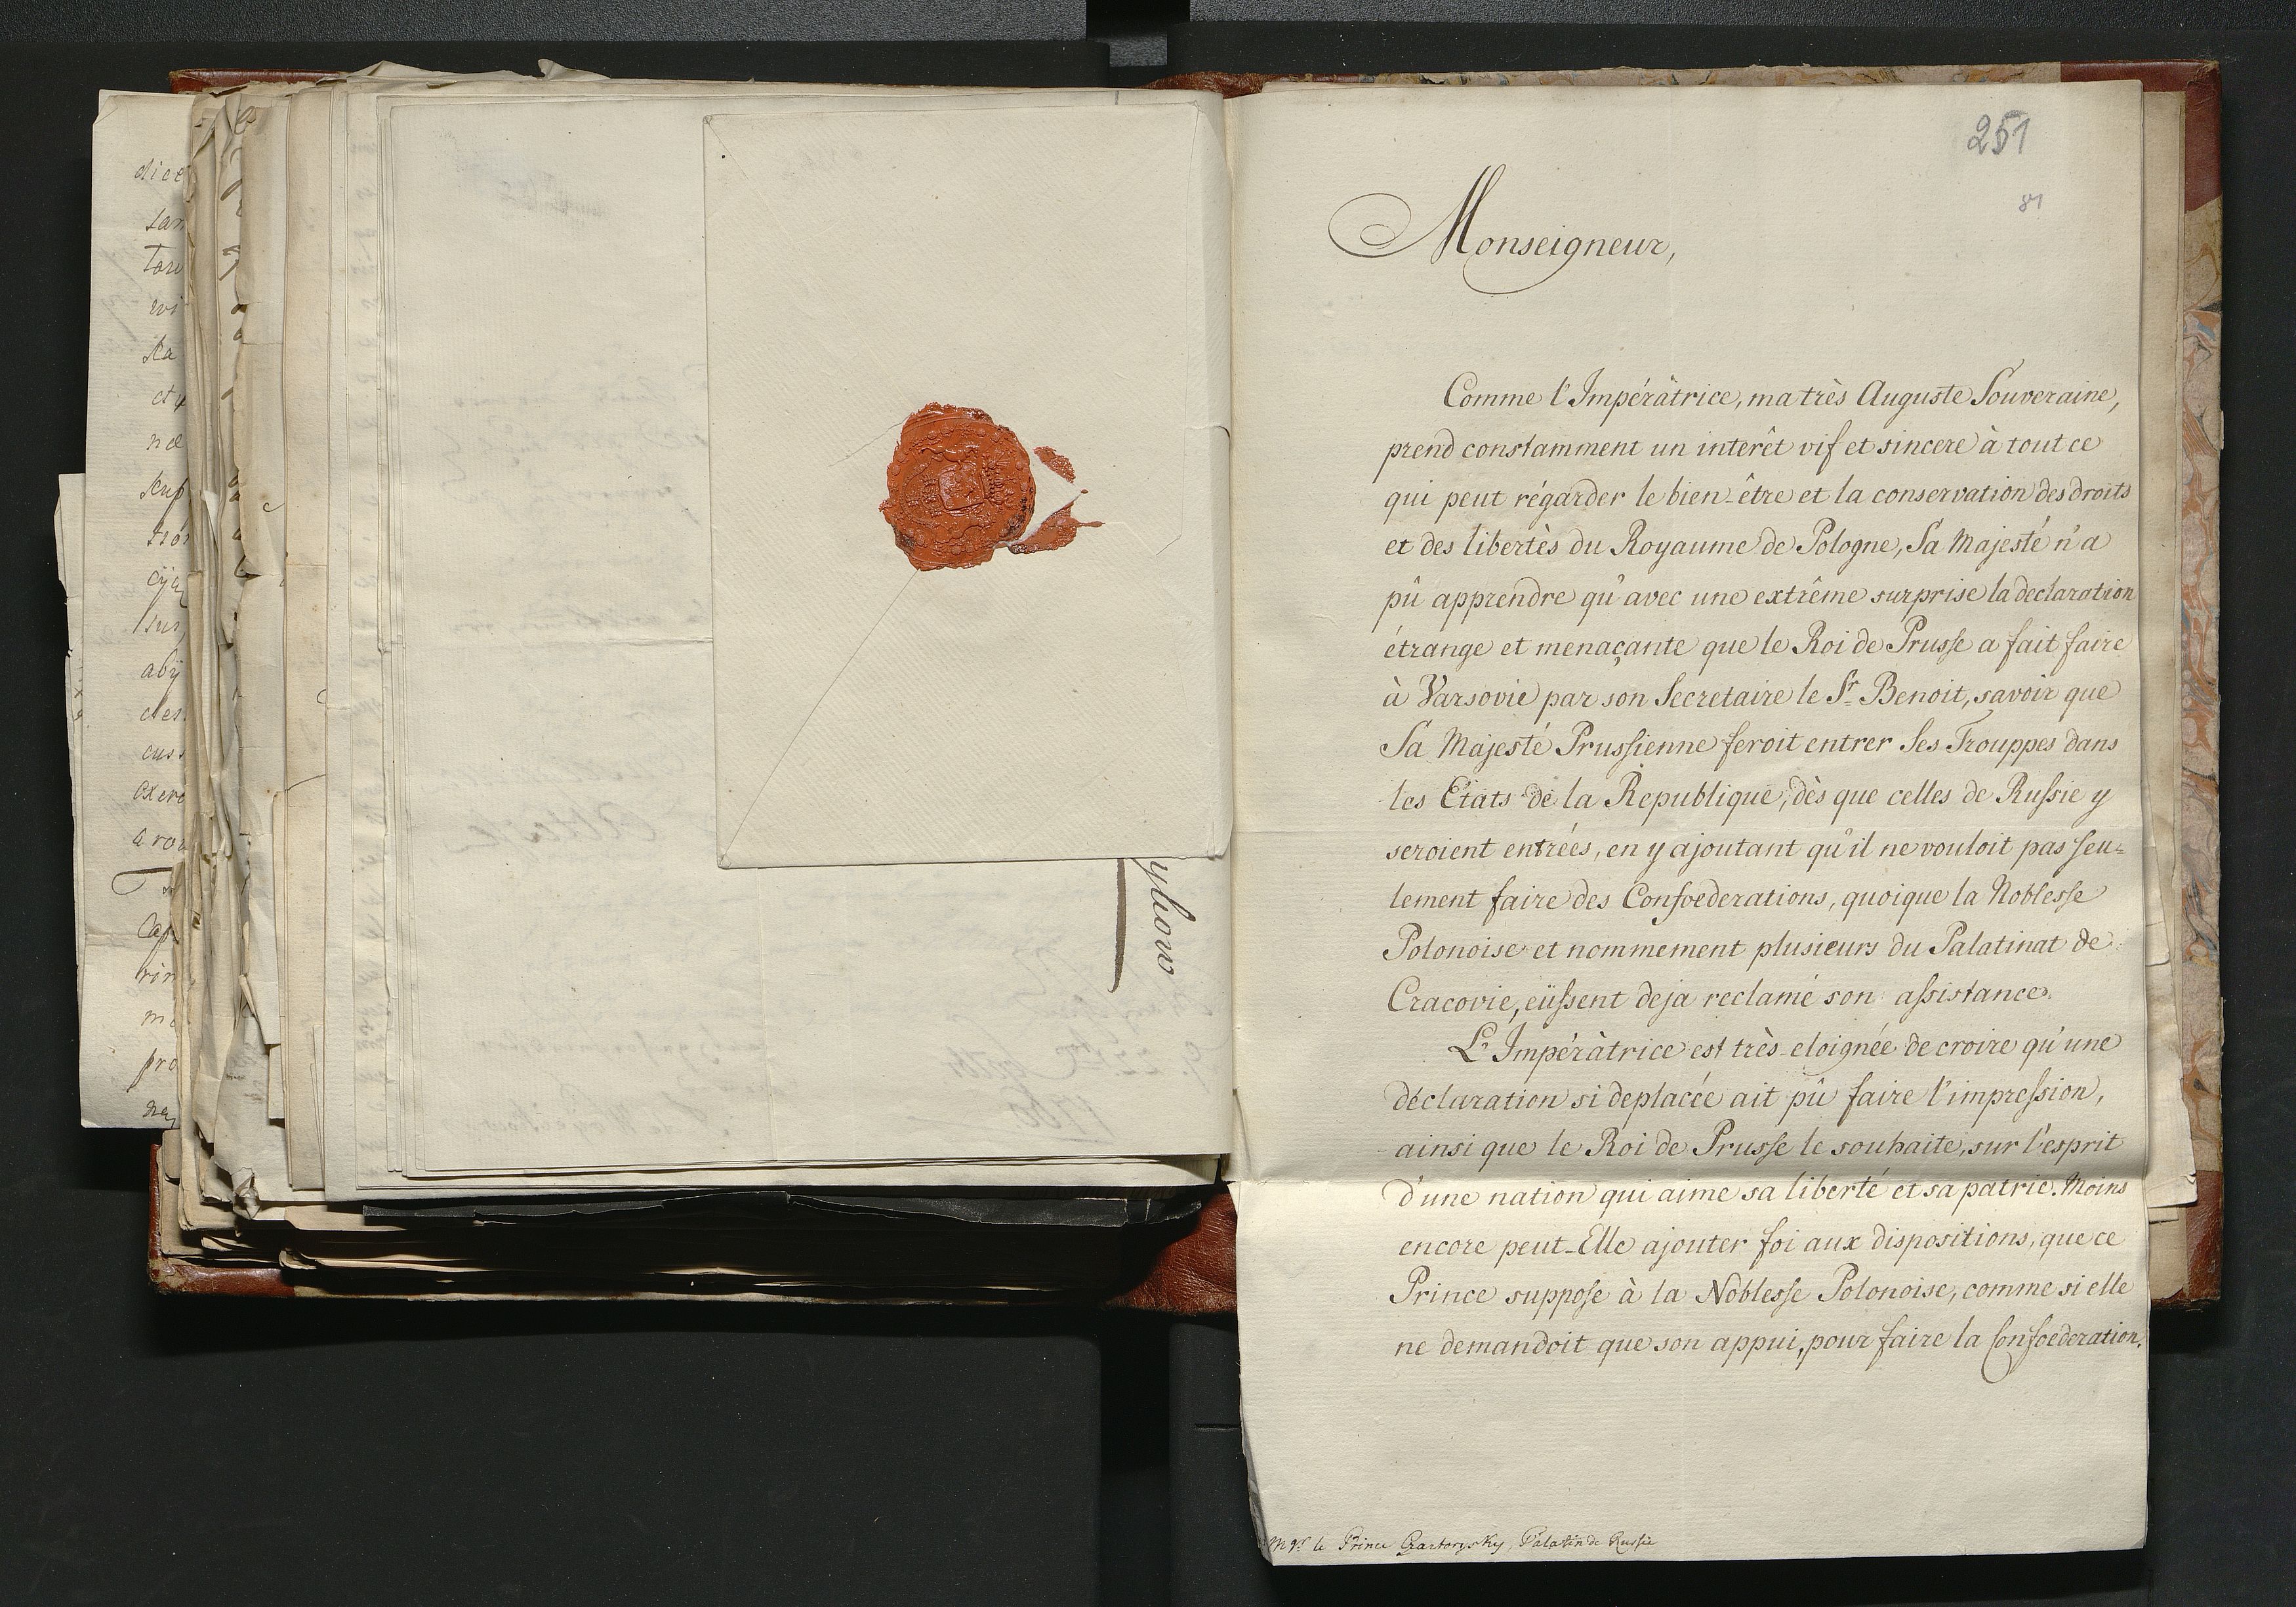 dice
san
ta
ne
scup
abij
cuss
exerc
Cap
pro
yliow
1760
251
81
Monseigneur,
Comme l'Impérâtrice, ma très Auguste Souveraine,
prend constamment un interêt vif et sincere à tout ce
qui peut régarder le bien-être et la conservation des droits
et des libertès du Royaume de Pologne, Sa Majesté n'a
pû apprendre qu'avec une extrême surprise la declaration
étrange et menaçante que le Roi de Prusse a fait faire
à Varsovie par son Secretaire le Sr. Benoit, savoir que
Sa Majesté Prussienne feroit entrer Ses Trouppes dans
les Etats de la Republique, dès que celles de Russie y
seroient entrées, en y ajoutant qu'il ne vouloit pas seu=
lement faire des Confoederations, quoique la Noblesse
Polonoise et nommement plusieurs du Palatinat de
Cracovie, eüssent deja reclamé son assistance.
L'Impérâtrice est très-eloignée de croire qu'une
déclaration si deplacée ait pû faire l'impression,
ainsi que le Roi de Prusse le souhaite, sur l'esprit
d'une nation qui aime sa liberté et sa patrie. Moins
encore peut-Elle ajouter foi aux dispositions, que ce
Prince suppose à la Noblesse Polonoise, comme si elle
ne demandoit que son appui, pour faire la Confoederation.
Mgr. le Prince Czartorysky, Palatin de Russie